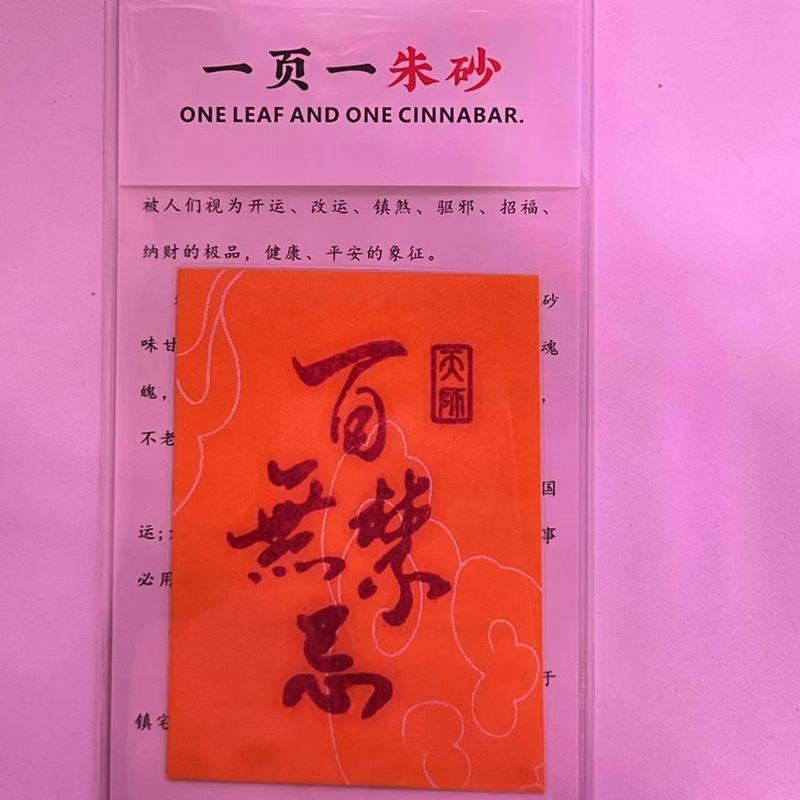 一页一朱砂
ONE LEAF AND ONE CINNABAR.
被人们视为开运、改运、镇煞、驱邪、招福、
纳财的极品，健康、平安的象征。
砂
味甘
魂
魄，
，
不老
国
运；
事
必用
于
镇宅
天师
百
無禁
忌